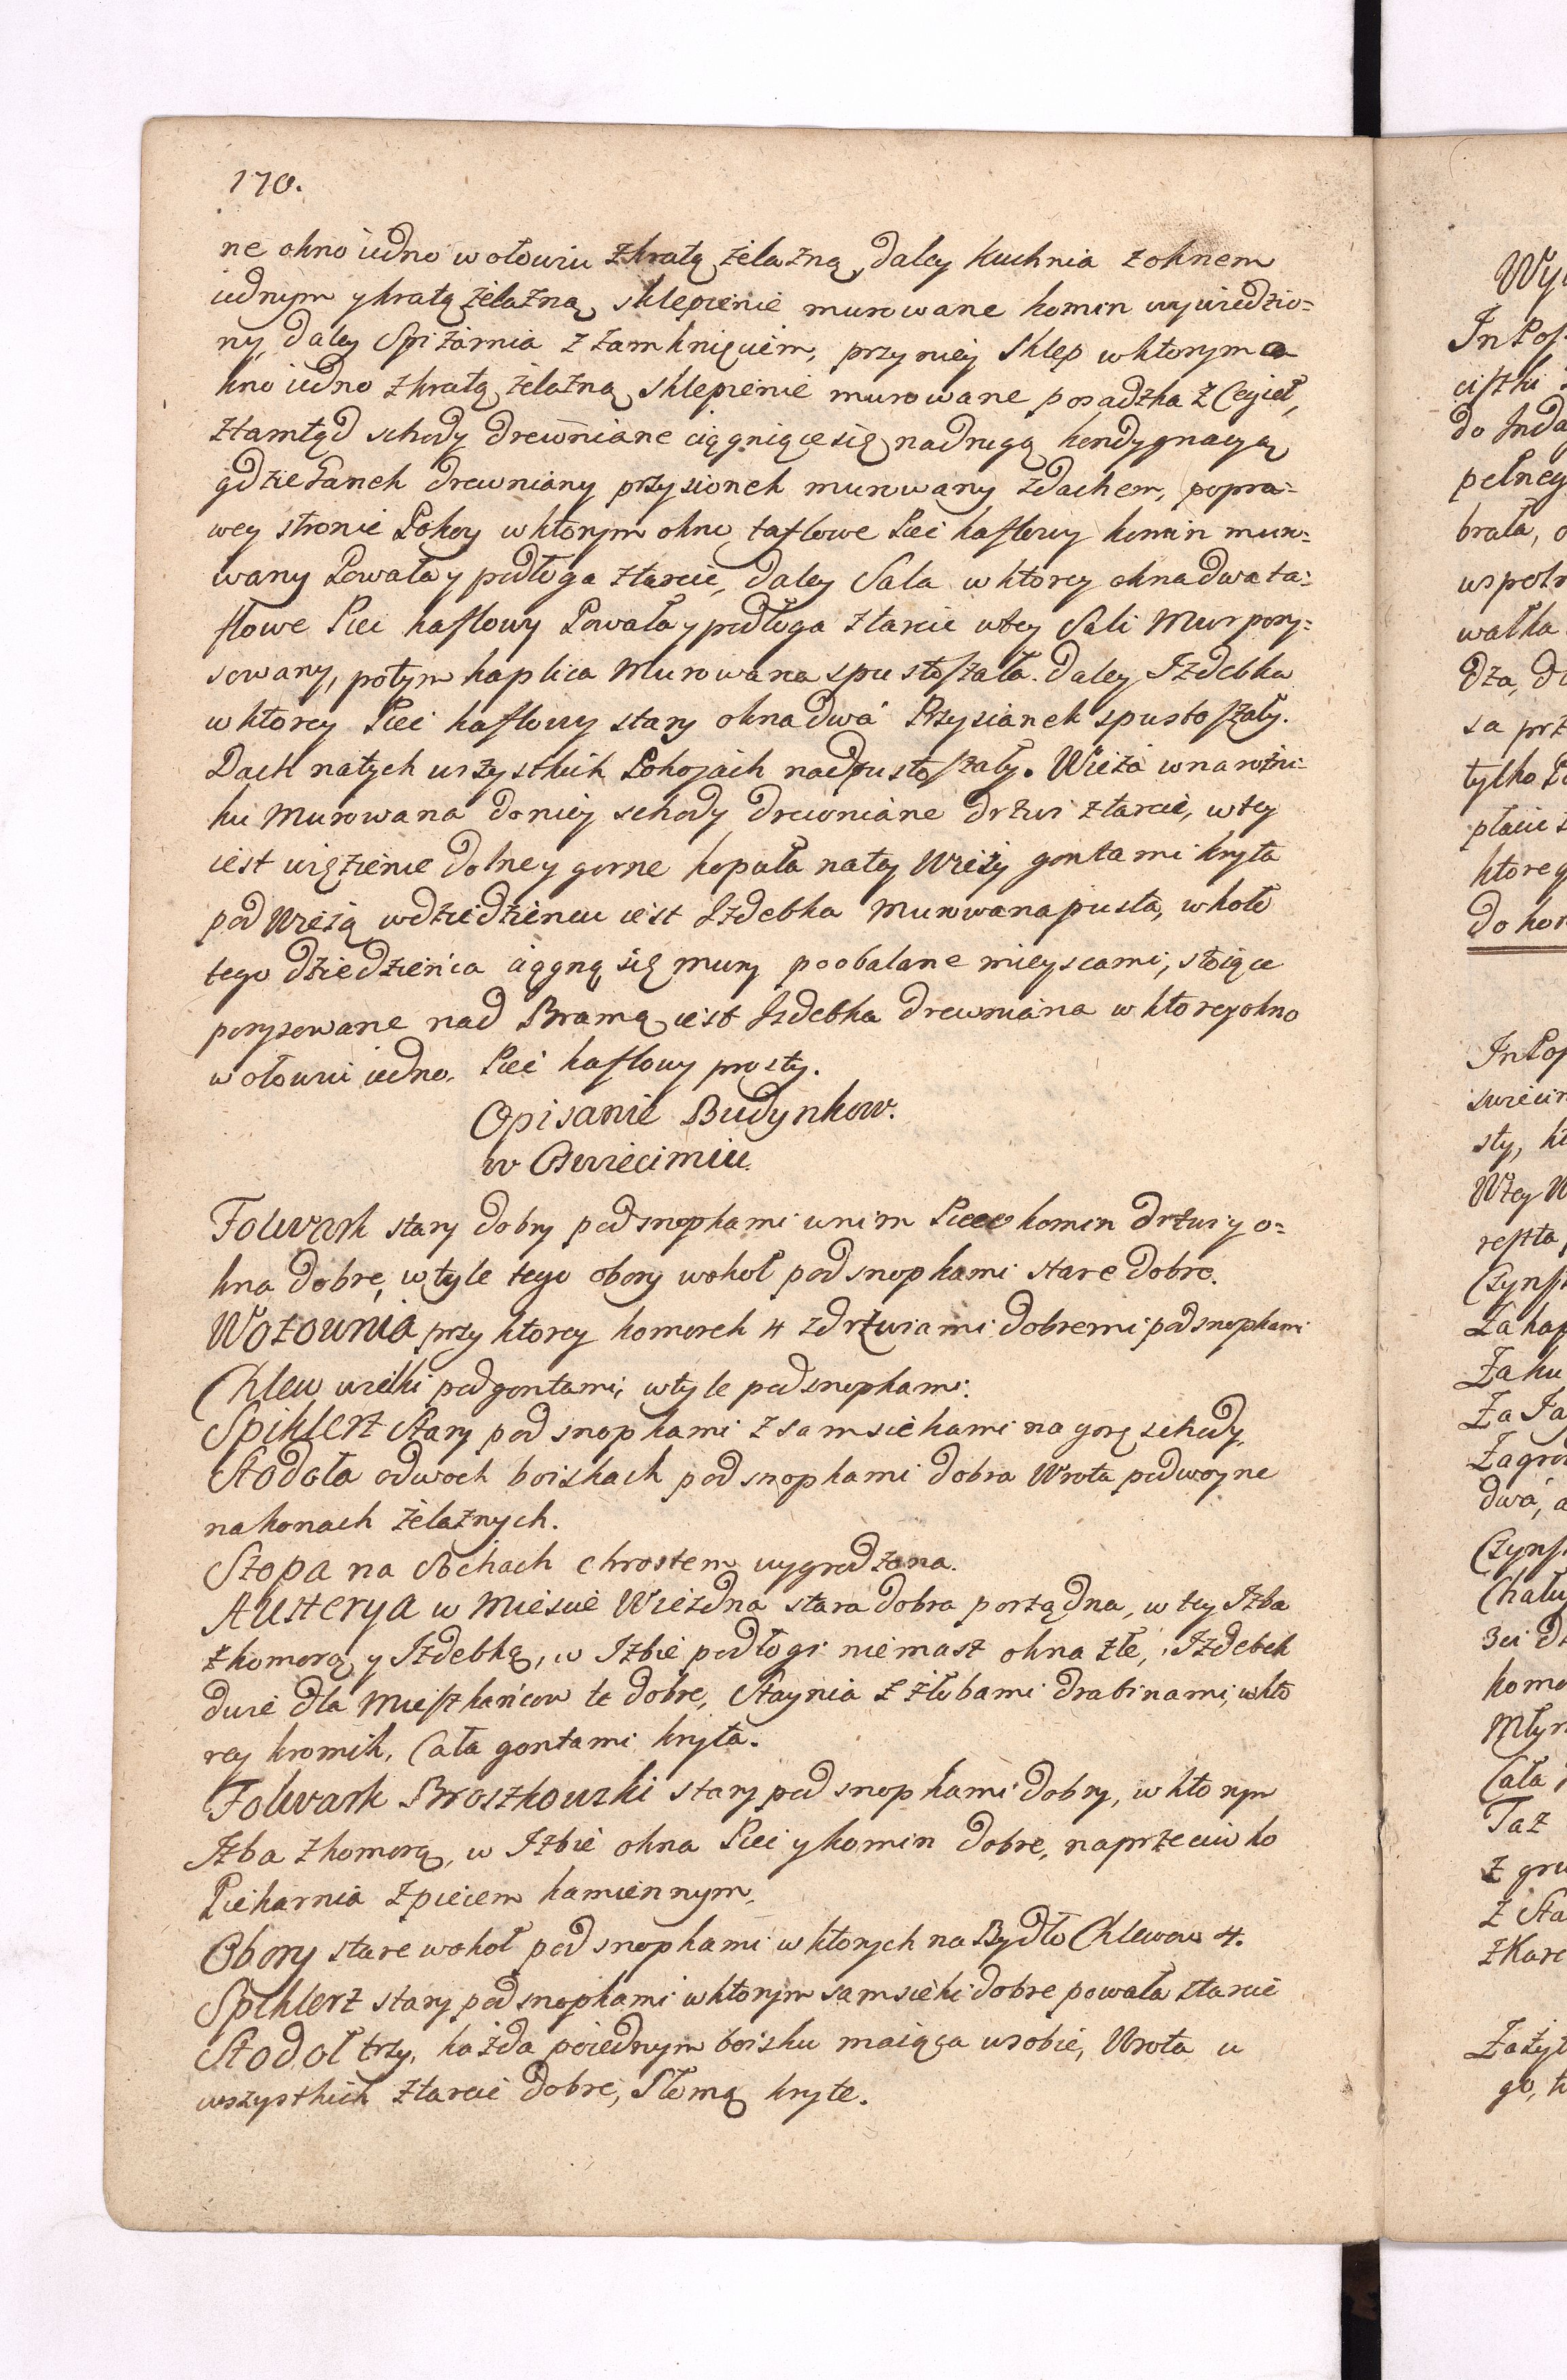 170.
ne okno iedno w ołowiu z kratą żelazną, daley kuchnia z oknem
iednym y kratą żelazną, sklepienie murowane komin wywiedzio=
ny, daley Spiżarnia z zamknięciem, przy niey Sklep w ktorym o
kno iedno z kratą żelazną, sklepienie murowane posadzka z Cegieł,
ztamtąd schody drewniane ciągniące się na drugą kondygnacyą
gdzie Ganek drewniany przysionek murowany z dachem, po pra=
wey stronie Pokoy w ktorym okno taflowe Piec kaflowy komin muro=
wany Powała y podłoga z tarcic, daley Sala w ktorey okna dwa ta=
flowe Piec kaflowy Powała y podłoga z tarcic w tey Sali Mur pory=
sowany, potym kaplica Murowana spustoszała. daley Izdebka
w ktorey Piec kaflowy stary okna dwa Przysianek spustoszały.
Dach na tych wszystkich Pokojach nadpustoszały. Wieża w narożni=
ku Murowana do niey schody drewniane drzwi z tarcic, w tey
iest więzienie dolne y gorne kopuła na tey Wieży gontami kryta
pod Wieżą w dziedzieńcu iest Izdebka Murowana pusta, w koło
tego dziedzieńca ciągną się mury poobalane mieyscami, stoiące
porysowane nad Bramą iest Izdebka drewniana w ktorey okno
w ołowiu iedno, Piec kaflowy prosty.
Opisanie Budynkow.
w Oswiecimiu.
Folwark stary dobry pod snopkami w nim Piec komin drzwi y o=
kna dobre, w tyle tego obory wokoł pod snopkami stare dobre.
Wozownia przy ktorey komorek 4 z drzwiami dobremi pod snopkami
Chlew wielki pod gontami, w tyle pod snopkami.
Spiklerz Stary pod snopkami z samsiekami na gorę schody.
Stodoła o dwoch boiskach pod snopkami dobra Wrota podwoyne
na konach żelaznych.
Szopa na Sochach chrostem wygrodzona.
Austerya w Mieście Wiezdna stara dobra porządna, w tey Izba
z komorą y Izdebką, w Izbie podłogi niemasz okna złe, Izdebek
dwie dla Mieszkańcow te dobre, Staynia z żłobami drabinami, w kto
rey kromik, Cała gontami kryta.
Folwark Broszkowski stary pod snopkami dobry, w ktorym
Izba z komorą, w Izbie okna Piec y komin dobre, naprzeciwko
Piekarnia z piecem kamiennym.
Obory stare wokoł pod snopkami w ktorych na Bydło Chlewow 4.
Spiklerz stary pod snopkami w ktorym samsieki dobre powała z tarcic
Stodoł trzy, każda po iednym boisku maiąca w sobie, Wrota u
wszystkich z tarcic dobre, Słomą kryte.